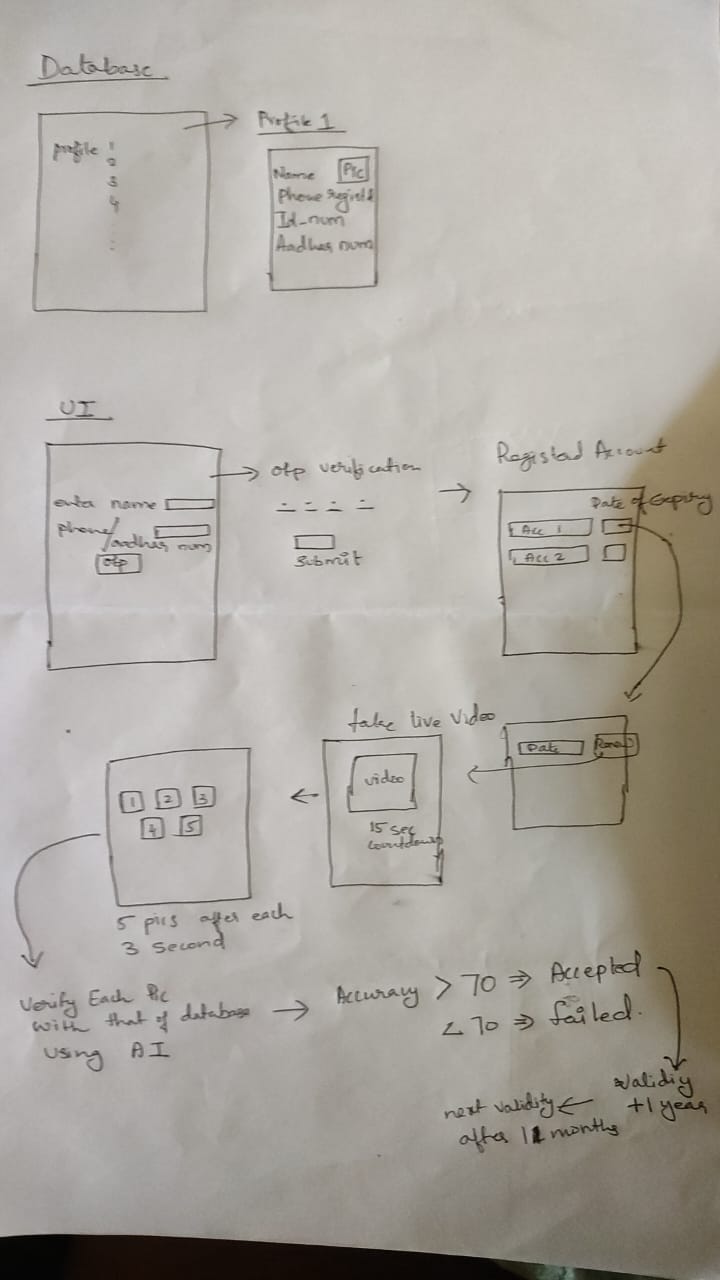 Database
profile 1
2
3
4
Profile 1
Name Pic
Id_num
Aadhar num
UI
enter name
phone/
aadhar num
otp
otp verification
Submit
Account
Date of Expiry
Acc 1
Acc 2
Date
take live video
video
15 sec
countdown
1 2 3
4 5
5 pics after each
3 second
Verify Each Pic
with that of database
using AI
Accuracy > 70 ⇒ Accepted
< 70 ⇒ failed.
+1 year
next validity
months